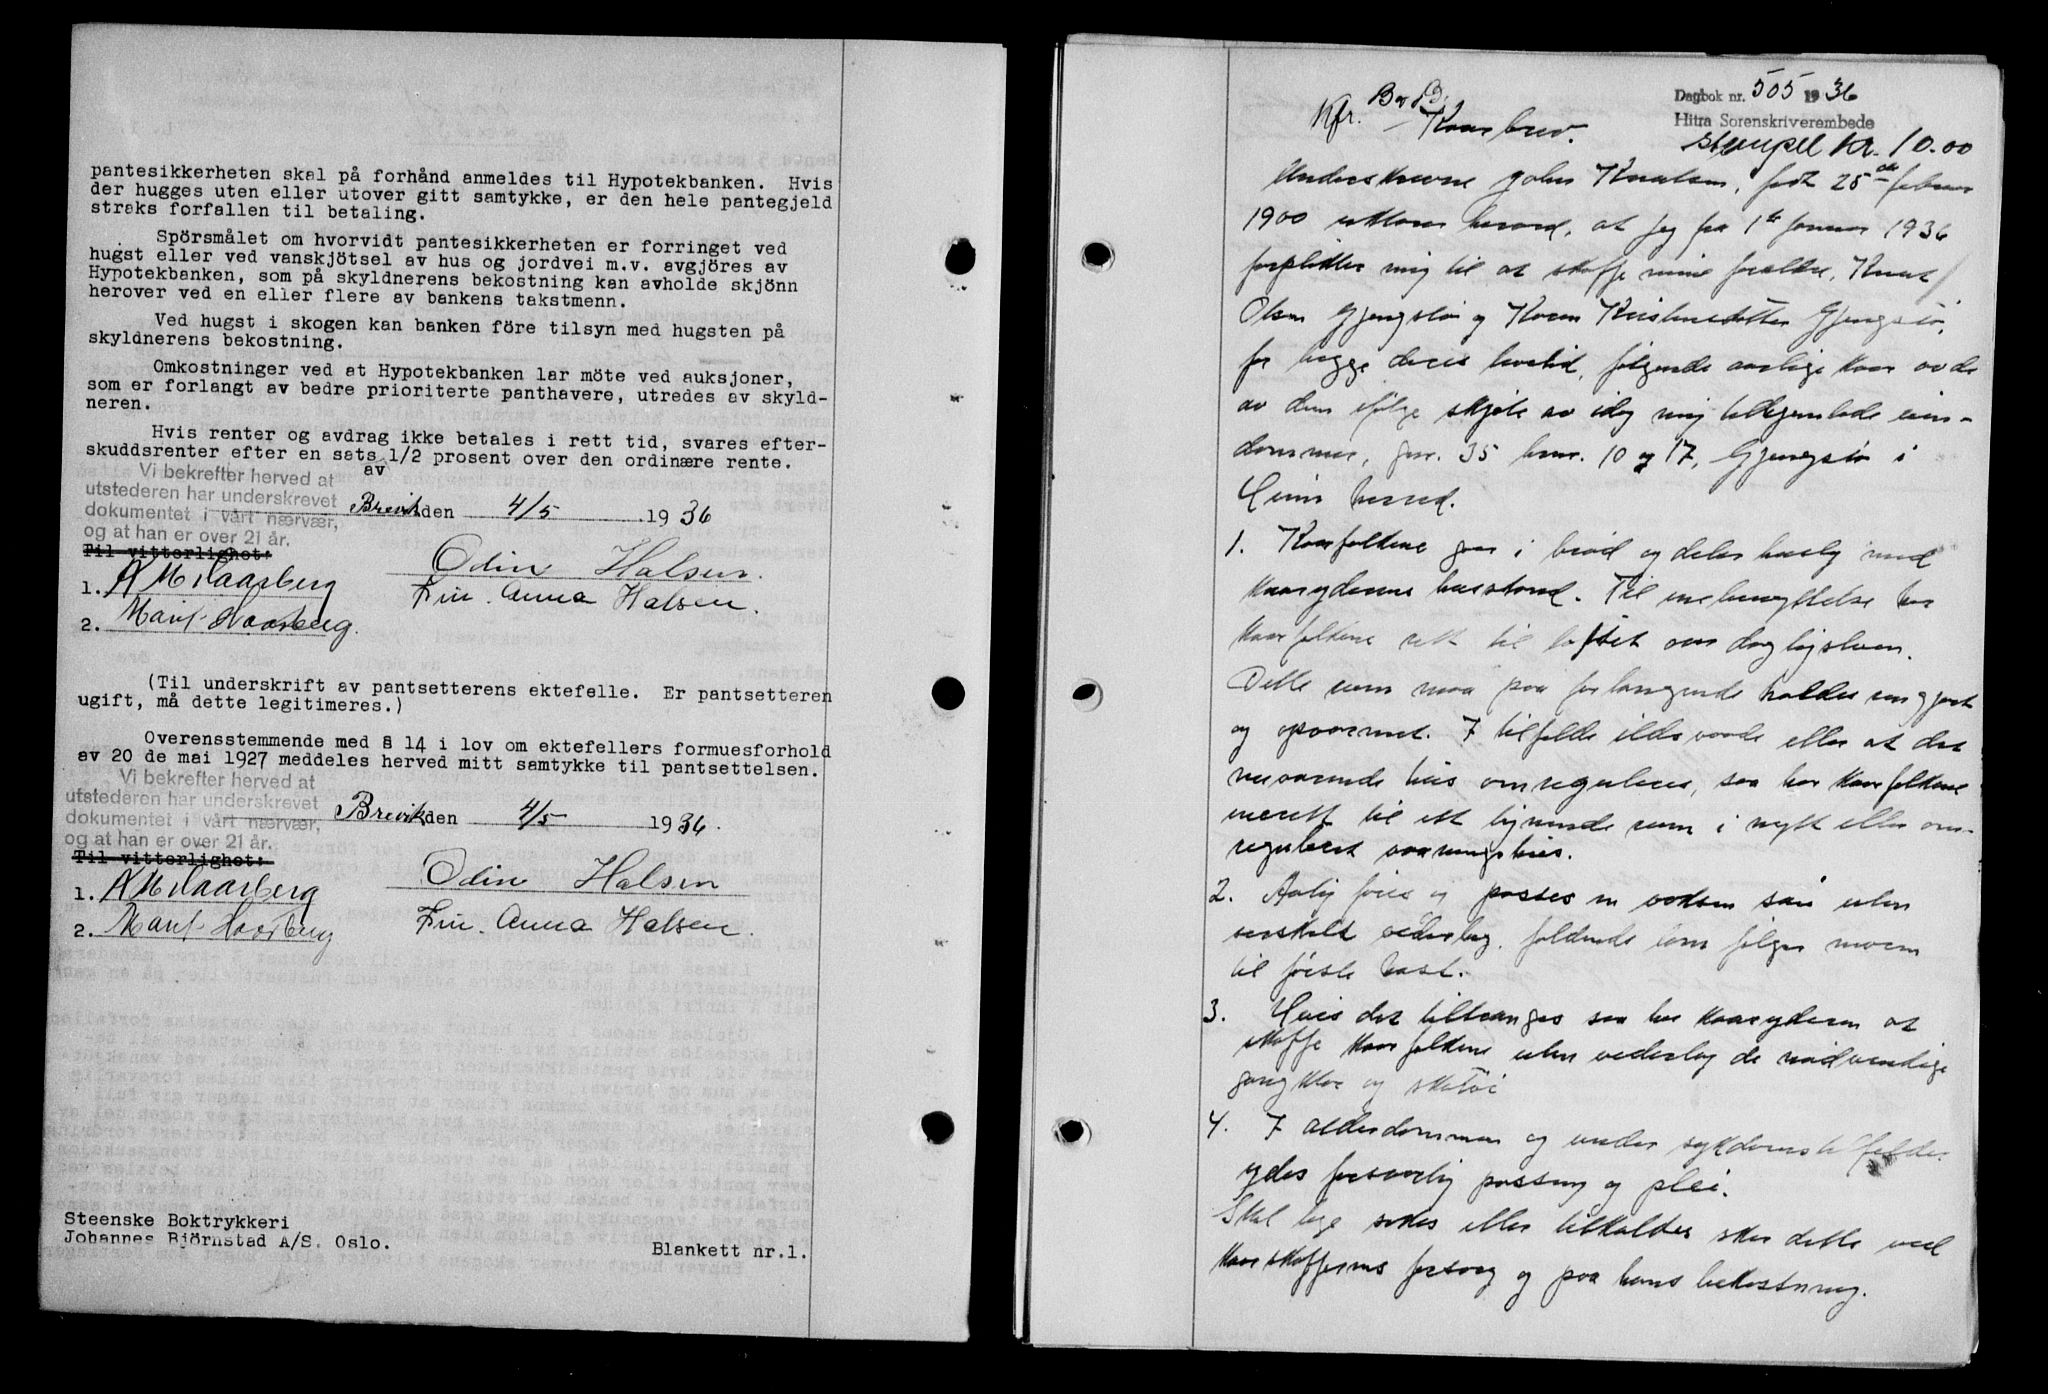 pantesikkerheten skal på forhånd anmeldes til Hypotekbanken. Hvis
der hugges uten eller utover gitt samtykke, er den hele pantegjeld
straks forfallen til betaling.
Spörsmålet om hvorvidt pantesikkerheten er forringet ved
hugst eller ved vanskjötsel av hus og jordvei m.v. avgjöres av
Hypotekbanken, som på skyldnerens bekostning kan avholde skjönn
herover ved en eller flere av bankens takstmenn.
Ved hugst i skogen kan banken före tilsyn med hugsten på
skyldnerens bekostning.
Omkostninger ved at Hypotekbanken lar möte ved auksjoner,
som er forlangt av bedre prioriterte panthavere, utredes av skyld-
neren.
Hvis renter og avdrag ikke betales i rett tid, svares efter-
skuddsrenter efter en sats av 1/2 prosent over den ordinære rente.
Vi bekrefter herved at
utstederen har underskrevet
dokumentet i vårt nærvær,
og at han er over 21 år.
Brevik den 4/5 1936
Til vitterlighet:
Odin Halsen.
1. A M Haarberg
Fru. Anna Halsen.
2. Marit Haarberg.
(Til underskrift av pantsetterens ektefelle. Er pantsetteren
ugift, må dette legitimeres.)
Overensstemmende med § 14 i lov om ektefellers formuesforhold
av 20 de mai 1927 meddeles herved mitt samtykke til pantsettelsen.
Vi bekrefter herved at
utstederen har underskrevet
dokumentet i vårt nærvær,
og at han er over 21 år.
Brevik den 4/5 1936.
Til vitterlighet:
Odin Halsen
1. A M Haarberg
Fru. Anna Halsen.
2. Marit Haarberg
Steenske Boktrykkeri
Johannes Björnstad A/S. Oslo.
Blankett nr.1.
Dagbok nr. 505 1936
Hitra Sorenskriverembede
Stempel Kr. 10.00
Kfr.
Kaarbrev.
Underskrevne John Knutsen, født 25de februar
1900 utsteder herved, at jeg fra 1ste januar 1936
forplikter mig til at skaffe mine forældre, Knut
Olsen Gjengstø og Karen Kristensdatter Gjengstø,
for begge deres levetid, følgende aarlige kaar av de
av dem ifølge skjøte av idag mig tilhjemlede eien-
dommer, gnr. 35 bnr. 10 og 17, Gjengstø i
Heim herred.
1. Kaarfolkene gaar i brød og deler husly med
kaaryderens husstand. Til enebenyttelse har
kaarfolkene rett til loftet over dagligstuen.
Dette rum maa paa forlangende holdes rengjort
og opvarmet. I tilfelde ildsvaade eller at det
nuværende hus omreguleres, saa har kaarfolkene
enerett til ett lignende rum i nytt eller om-
regulert vaaningshus.
2. Aarlig føies og passes en voksen sau uten
særskilt vederlag. følgende lam følger moren
til første høst.
3. Hvis det tiltrænges saa har kaaryderen at
skaffe kaarfolkene uten vederlag de nødvendige
gangklær og skotøi
4. I alderdommen og under sykdomstilfelder
ydes forsvarlig pasning og pleie.
Skal læge søkes eller tilkaldes sker dette ved
kaarskafferens forsorg og paa hans bekostning.